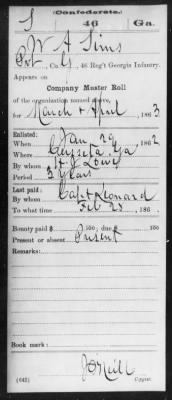 Confederate.
S 46 Ga.
W A Sims
Pvt., Co. 46 Reg't Georgia Infantry.
Appears on
Company Muster Roll
of the organization named above,
for March & April, 1863
Enlisted:
When Jan 29, 1862
Where Cusseta, Ga
By whom Lowe
Period 3 Years
Last paid:
By whom Capt Leonard
To what time Feb 23, 186
Bounty paid $ 100; due $ 100
Present or absent Present
Remarks:
Book mark:
(642) Copyist.